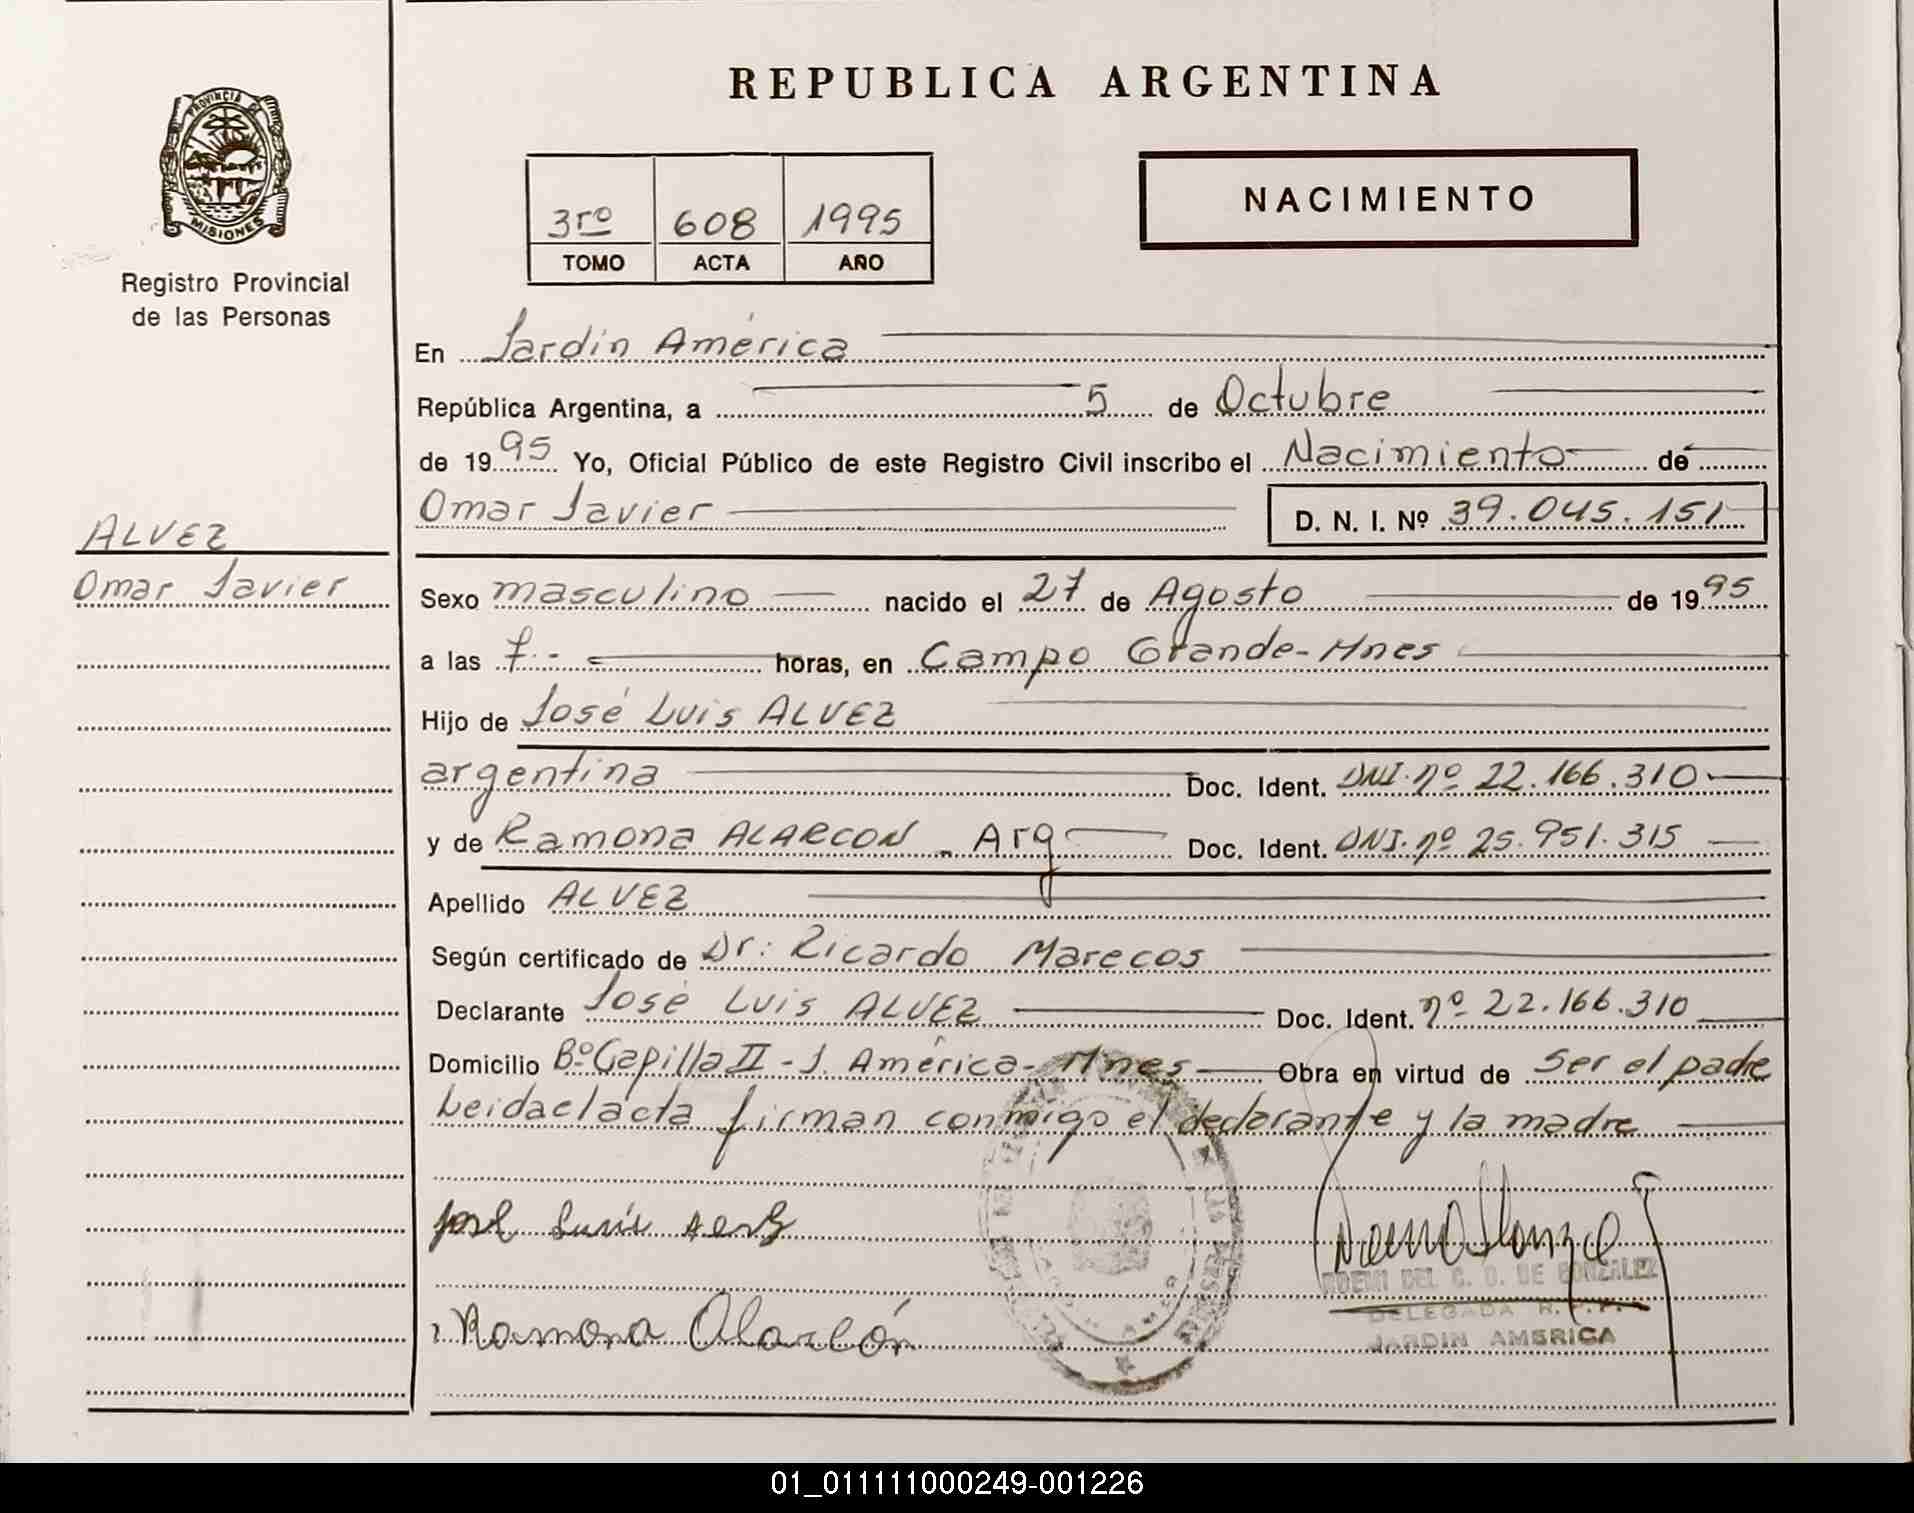 REPUBLICA ARGENTINA
PROVINCIA DE
MISIONES
Registro Provincial
de las Personas
3ro 608 1995
TOMO ACTA AÑO
NACIMIENTO
En Jardin América
República Argentina, a 5 de Octubre
de 1995 Yo, Oficial Público de este Registro Civil inscribo el Nacimiento de
Omar Javier D. N. I. Nº 39.045.151
ALVEZ
Omar Javier
Sexo masculino nacido el 27 de Agosto de 1995
a las 7.- horas, en Campo Grande-Mnes
Hijo de José Luis ALVEZ
argentina Doc. Ident. DNI.nº 22.166.310
y de Ramona ALARCON - Arg Doc. Ident. DNI.nº 25.951.315
Apellido ALVEZ
Según certificado de Dr: Ricardo Marecos
Declarante José Luis ALVEZ Doc. Ident. nº 22.166.310
Domicilio Bº Capilla II - J. América - Mnes Obra en virtud de Ser el padre
Leida el acta firman conmigo el declarante y la madre
José Luis
Ramona Alarcón
NOEMI DEL C. D. DE GONZALEZ
DELEGADA R.P.P.
JARDIN AMERICA
01_011111000249-001226